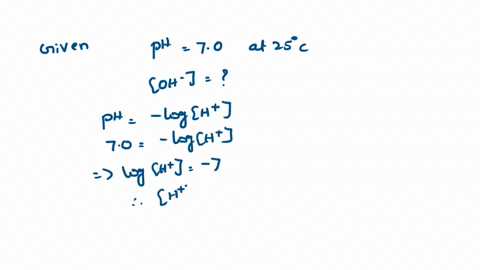 Given pH = 7.0 at 25°c
[OH-] = ?
pH = -log[H+]
7.0 = -log[H+]
=> log[H+] = -7
∴ [H+